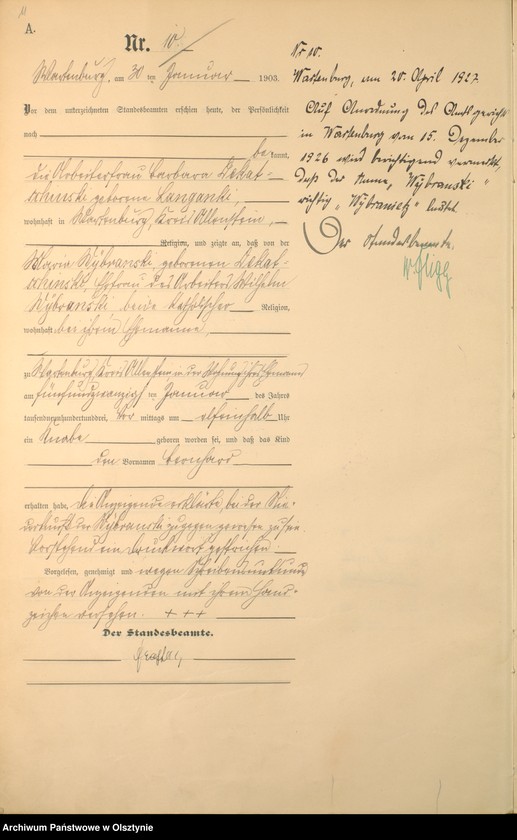 11
A.
Nr. 10.
Wartenburg, am 30 ten Januar 1903.
Vor dem unterzeichneten Standesbeamten erschien heute, der Persönlichkeit
nach
be kannt,
die Arbeiterfrau Barbara
geborene Langanki,
wohnhaft in Wartenburg, Kreis Allenstein,
Religion, und zeigte an, daß von der
Maria Wybranski, geborenen
Ehefrau des Arbeiters Wilhelm
Wybranski beide katholischer Religion,
wohnhaft bei ihrem Ehemanne
zu Wartenburg Kreis Allenstein in der Wohnung ihres Ehemannes
am fünfundzwanzigsten Januar des Jahres
tausendneunhundertdrei, Vor mittags um elfeinhalb Uhr
ein Knabe geboren worden sei, und daß das Kind
den Vornamen Bernhard
erhalten habe, die Anzeigende erklärte, bei der Nie-
derkunft der Wybranski zugegen gewesen zu sein.
Vorstehend ein Druckwort gestrichen
Vorgelesen, genehmigt und wegen Schreibensunkunde
von der Anzeigenden mit ihrem Hand-
zeichen versehen. + + +
Der Standesbeamte.
Nr 10.
Wartenburg, am 20. April 1927.
Auf Anordnung des Amtsgerichts
in Wartenburg vom 15. Dezember
1926 wird berichtigend vermerkt,
daß der Name „Wybranski"
richtig „Wybranietz" lautet.
Der Standesbeamte.
Archiwum Państwowe w Olsztynie